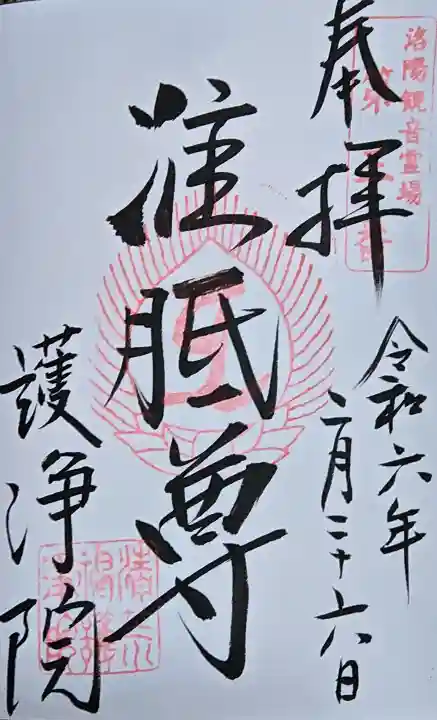 洛陽観音霊場
第三番
奉拝
令和六年
二月二十六日
准胝尊
護浄院